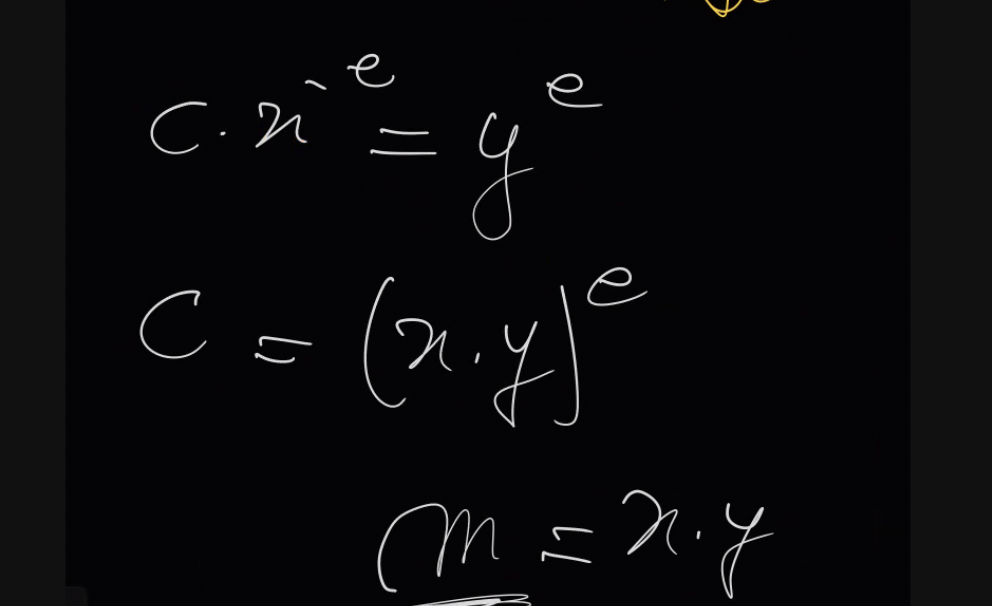 C · x⁻ᵉ = yᵉ
C = (x · y)ᵉ
m = x · y